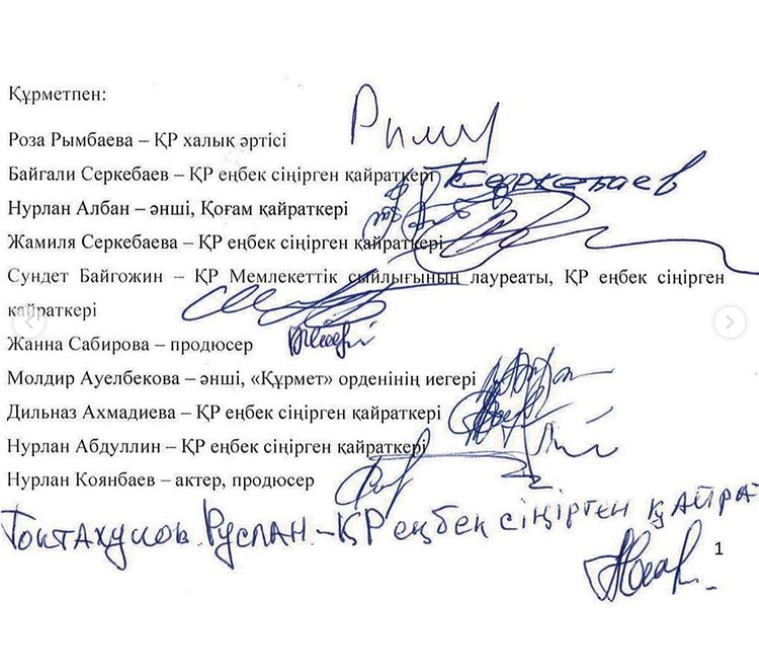 Құрметпен:
Роза Рымбаева – ҚР халық әртісі
Байгали Серкебаев – ҚР еңбек сіңірген қайраткері
Нурлан Албан – әнші, Қоғам қайраткері
Жамиля Серкебаева – ҚР еңбек сіңірген қайраткері
Сундет Байгожин – ҚР Мемлекеттік сыйлығының лауреаты, ҚР еңбек сіңірген
қайраткері
Жанна Сабирова – продюсер
Молдир Ауелбекова – әнші, «Құрмет» орденінің иегері
Дильназ Ахмадиева – ҚР еңбек сіңірген қайраткері
Нурлан Абдуллин – ҚР еңбек сіңірген қайраткері
Нурлан Коянбаев – актер, продюсер
Руслан – ҚР еңбек сіңірген қайрат
1